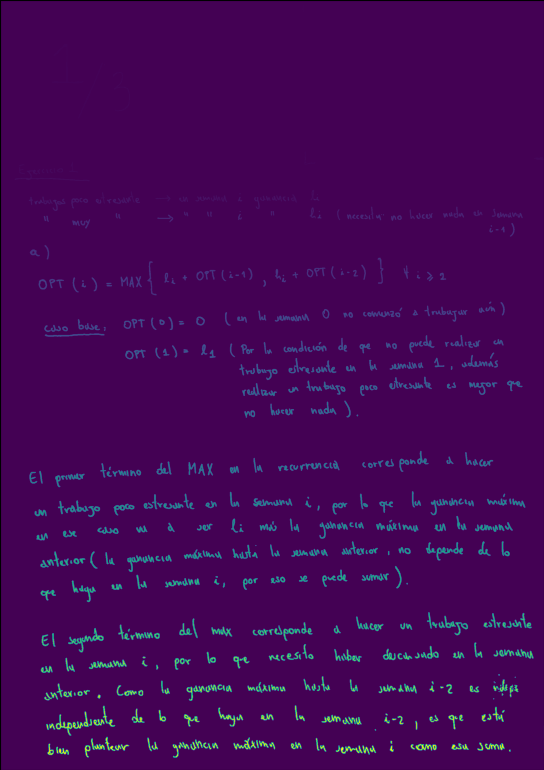 1/3
Ejercicio 1
trabajo poco estresante → en semana i ganancia li
" muy " → " " i " hi ( necesita no hacer nada en semana
i-1 )
a )
OPT (i) = MAX { li + OPT (i-1) , hi + OPT (i-2) } ∀ i ≥ 1
caso base: OPT (0) = 0 ( en la semana 0 no comenzó a trabajar aún )
OPT (1) = l1 ( Por la condición de que no puede realizar un
trabajo estresante en la semana 1, además
realizar un trabajo poco estresante es mejor que
no hacer nada ).
El primer término del MAX en la recurrencia corresponde a hacer
un trabajo poco estresante en la semana i, por lo que la ganancia máxima
en ese caso va a ser li más la ganancia máxima en la semana
anterior ( la ganancia máxima hasta la semana anterior, no depende de lo
que haga en la semana i, por eso se puede sumar ).
El segundo término del max corresponde a hacer un trabajo estresante
en la semana i, por lo que necesito haber descansado en la semana
anterior. Como la ganancia máxima hasta la semana i-2 es
independiente de lo que haga en la semana i-2, es que está
bien plantear la ganancia máxima en la semana i como esa suma.